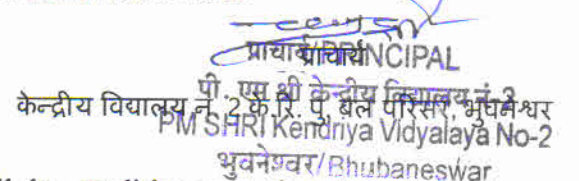 प्राचार्य/PRINCIPAL
प्राचार्य
पी. एम श्री केन्द्रीय विद्यालय नं. 2
केन्द्रीय विद्यालय नं. 2 के.रि.पु. बल परिसर, भुवनेश्वर
PM SHRI Kendriya Vidyalaya No-2
भुवनेश्वर/Bhubaneswar